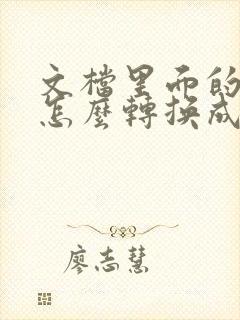 文檔里面的
怎麼轉換成
廖志慧